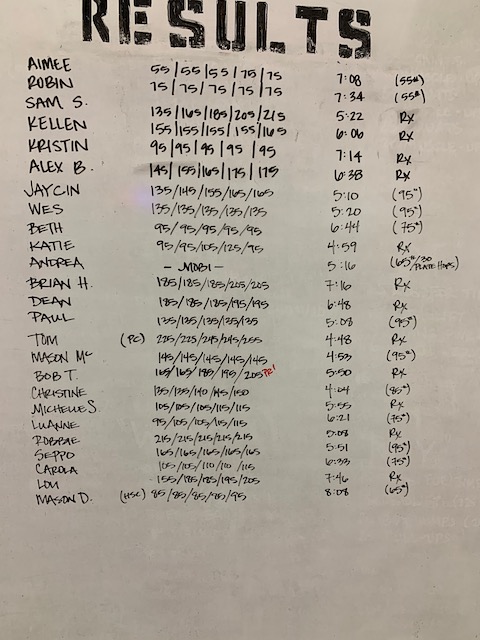 RESULTS
AIMEE 55/55/55/75/75 7:08 (55#)
ROBIN 75/75/75/75/75 7:34 (55#)
SAM S. 135/165/185/205/215 5:22 Rx
KELLEN 155/155/155/155/165 6:06 Rx
KRISTIN 95/95/95/95/95 7:14 Rx
ALEX B. 145/155/165/175/175 6:38 Rx
JAYCIN 135/145/155/165/165 5:10 (95#)
WES 135/135/135/135/135 5:20 (95#)
BETH 95/95/95/95/95 6:44 (75#)
KATIE 95/95/105/125/95 4:59 Rx
ANDREA - MOBI - 5:16 (65#/30 PLATE HOPS)
BRIAN H. 185/185/185/205/205 7:16 Rx
DEAN 185/185/185/195/195 6:48 Rx
PAUL 135/135/135/135/135 5:08 (95#)
TOM (PC) 225/225/245/255 4:48 Rx
MASON Mc 145/145/145/145/145 4:53 (95#)
BOB T. 165/165/185/195/205 PR! 5:50 Rx
CHRISTINE 135/135/140/145/150 4:04 (85#)
MICHELLE S. 105/105/105/115/115 5:55 Rx
LUANNE 95/105/105/115/115 6:21 (75#)
ROBBIE 215/215/215/215/215 5:08 Rx
SEPPO 165/165/165/165/165 5:51 (95#)
CAROLA 105/105/110/110/115 6:33 (75#)
LOU 155/185/185/195/205 7:46 Rx
MASON D. (HSC) 85/85/85/85/95 8:08 (65#)